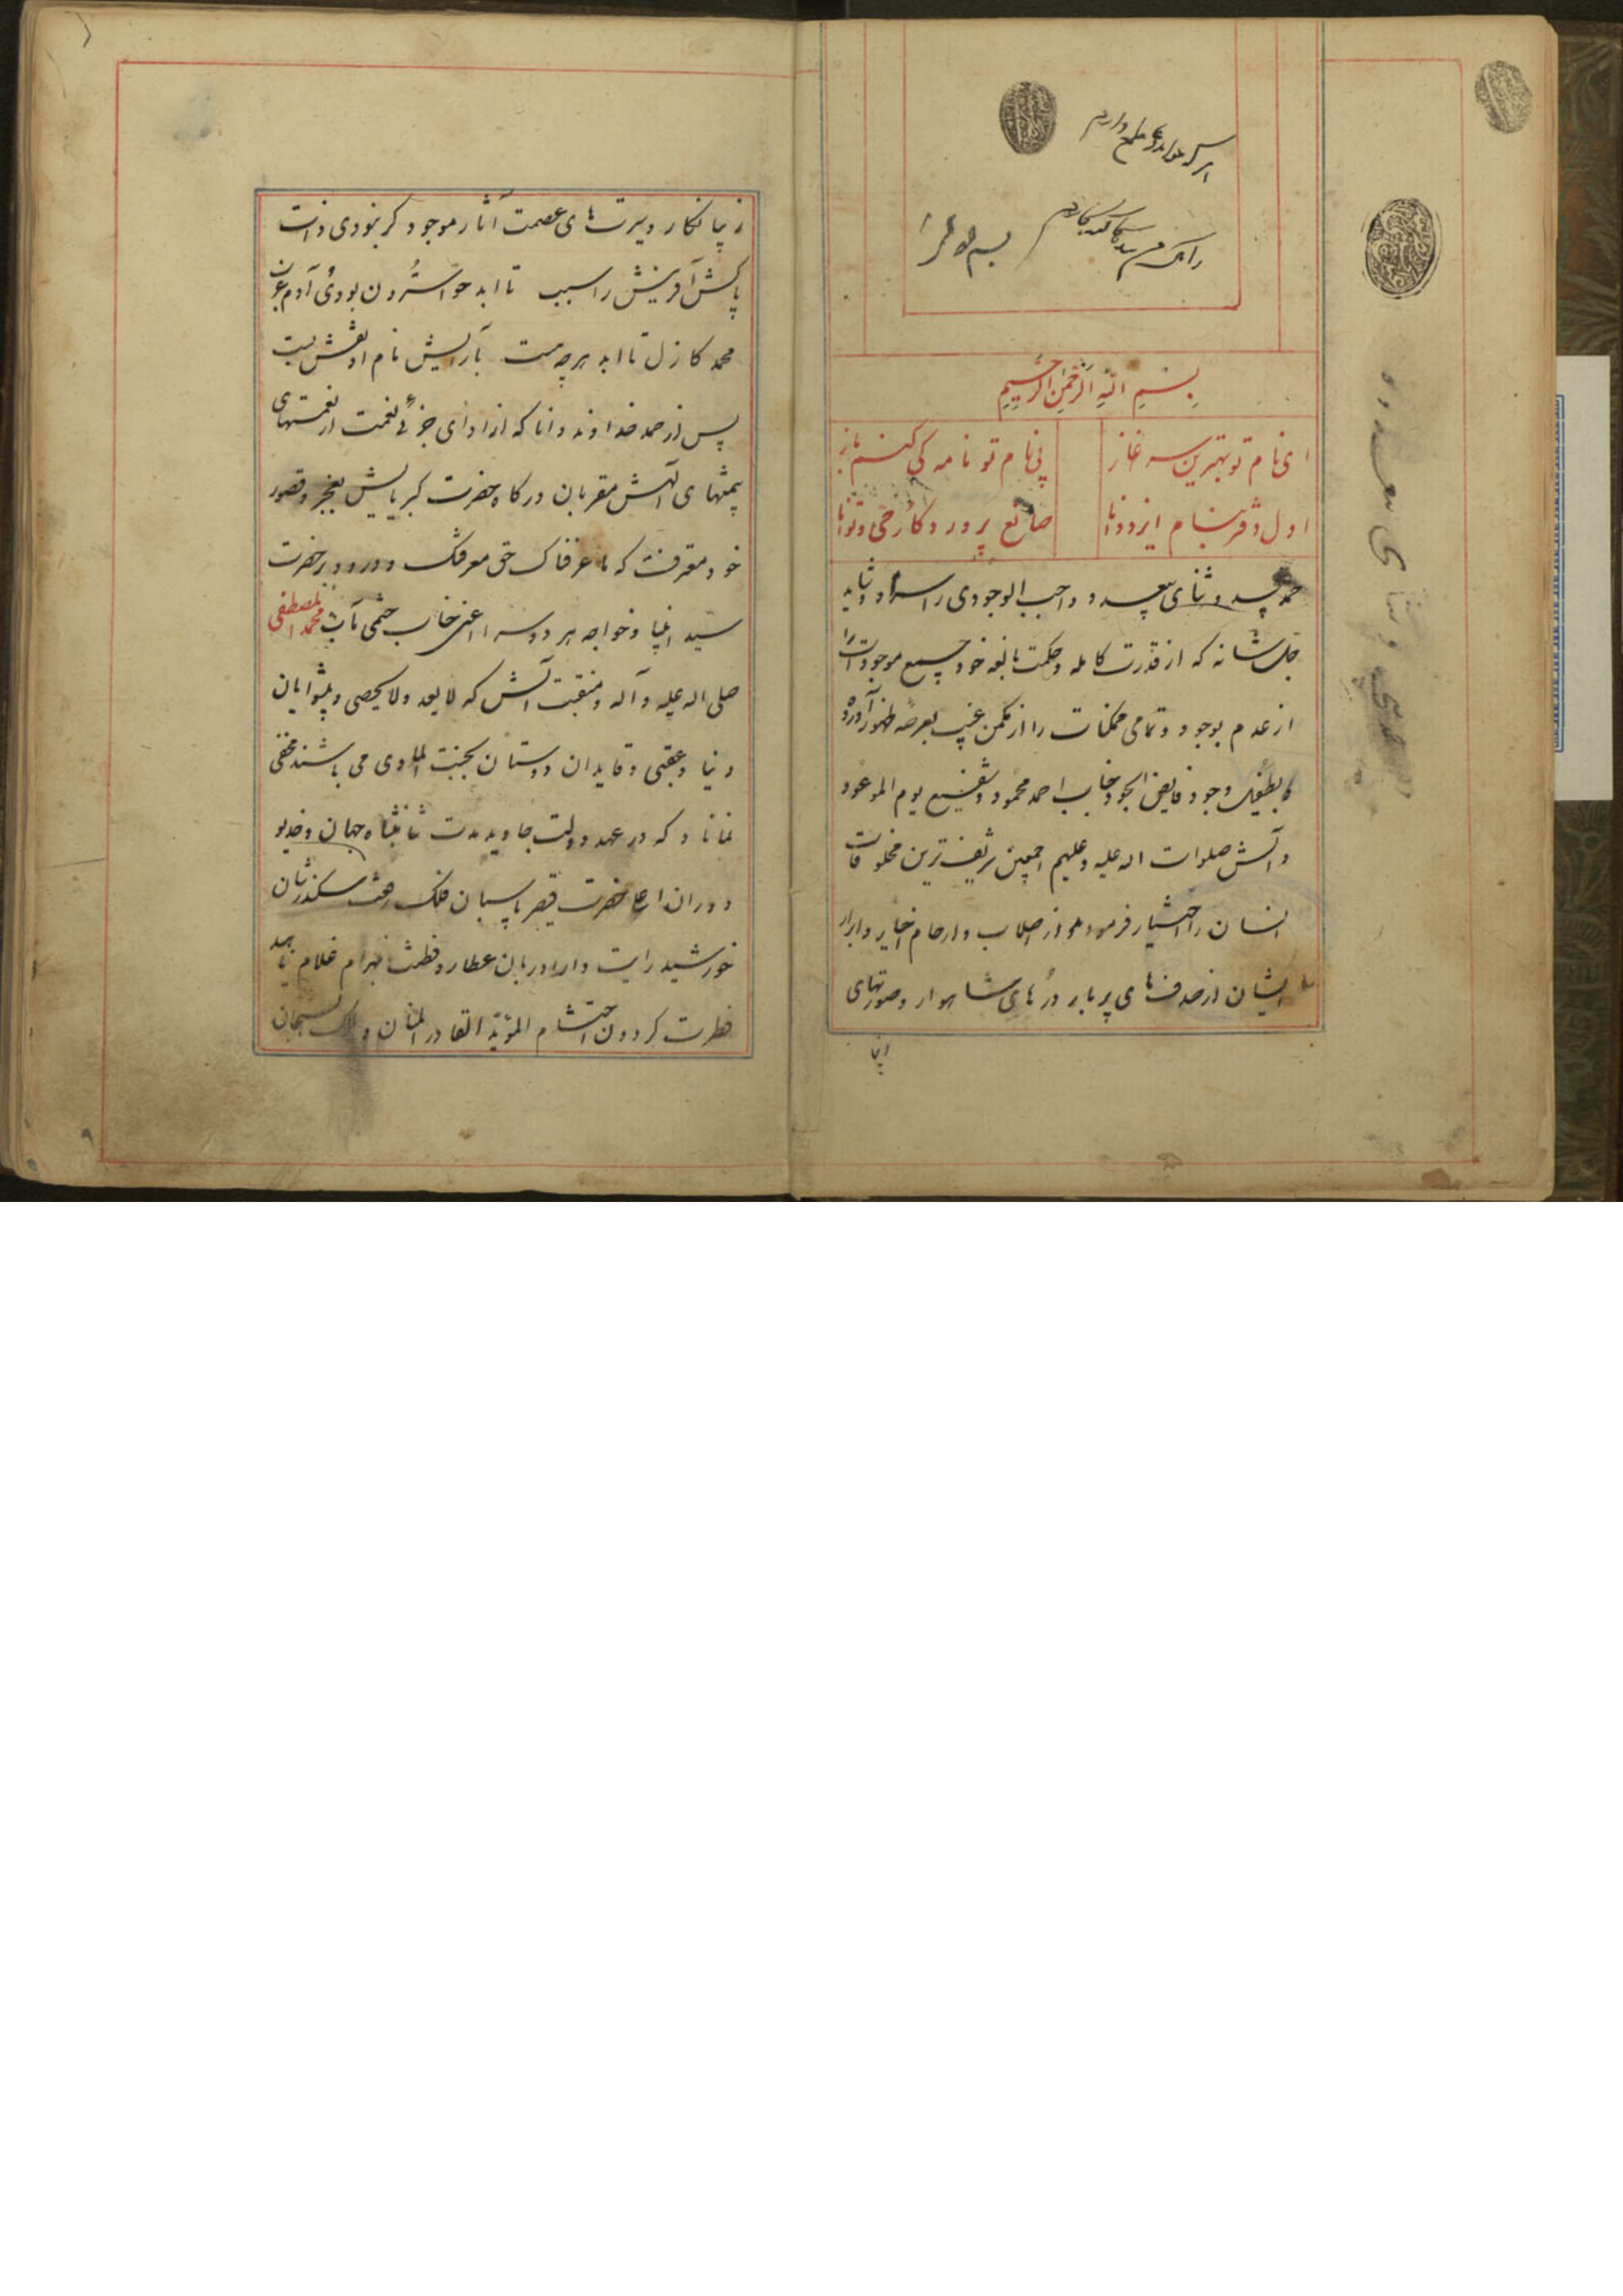 هر که خواند دعا طمع دارم
زانکه من بنده گنه کارم
بسم الله الرحمن الرحیم
ای نام تو بهترین سرآغاز بی نام تو نامه کی کنم باز
اول دفتر بنام ایزد دانا صانع پروردگار حی و توانا
حمد بیحد و ثنای بیعدد واجب الوجودی را سزاد و شاید
جل شانه که از قدرت کامله و حکمت بالغه خود جمیع موجودات را
از عدم بوجود و تمامی ممکنات را از مکمن غیب بعرصه ظهور آورده
و بطفیل وجود فایض الجود جناب احمد محمود و شفیع یوم الموعود
و آلش صلوات اله علیه و علیهم اجمعین شریف ترین مخلوقات
انسان را اختیار فرموده و از اصلاب و ارحام اخایر و ابرار
ایشان از صدفهای پربار درهای شاهوار و صورتهای
زیبا نگار و سیرتهای عصمت آثار موجود گر نبودی ذات
پاکش آفرینش را سبب تا ابد حوا سترون بودی آدم عزب
محمد کازل تا ابد هرچه هست بآرایش نام او نقش بست
پس از حمد خداوند دانا که از ادای جزئی نعمت از نعمتهای
بیمنتهای آلهش مقربان درگاه حضرت کبریایش بعجز و قصور
خود معترفند که ما عرفناک حق معرفتک و درود بر حضرت
سید انبیا و خواجه هر دو سرا اعنی جناب ختمی مآب محمد المصطفی
صلی اله علیه و آله و منقبت آلش که لایعد و لایحصی و پیشوایان
دنیا و عقبی و قایدان دوستان بجنت الماوی می باشند مخفی
نماناد که در عهد دولت جاوید مدت شاهنشاه جهان و خدیو
دوران اعلیحضرت قیصر پاسبان فلک رخش سکندرشان
خورشید رایت دارا دربان عطارد فطنت بهرام غلام ناهید
فطرت گردون احتشام المؤید القادر المنان و